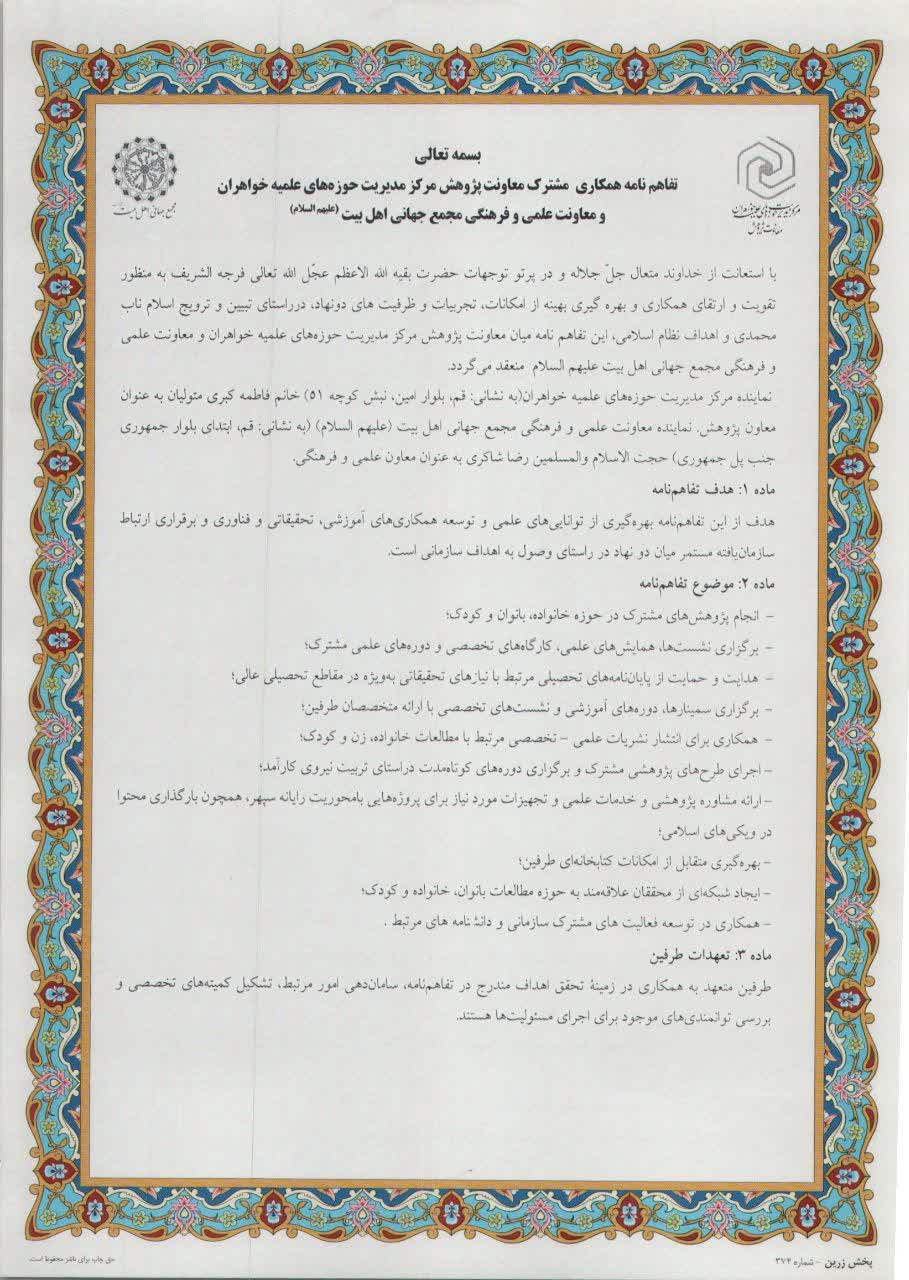 بسمه تعالی
تفاهم نامه همکاری مشترک معاونت پژوهش مرکز مدیریت حوزه‌های علمیه خواهران
و معاونت علمی و فرهنگی مجمع جهانی اهل بیت (علیهم السلام)
مرکز مدیریت حوزه‌های علمیه خواهران
معاونت پژوهش
مجمع جهانی اهل بیت
با استعانت از خداوند متعال جلّ جلاله و در پرتو توجهات حضرت بقیه الله الاعظم عجّل الله تعالی فرجه الشریف به منظور
تقویت و ارتقای همکاری و بهره گیری بهینه از امکانات، تجربیات و ظرفیت های دونهاد، درراستای تبیین و ترویج اسلام ناب
محمدی و اهداف نظام اسلامی، این تفاهم نامه میان معاونت پژوهش مرکز مدیریت حوزه‌های علمیه خواهران و معاونت علمی
و فرهنگی مجمع جهانی اهل بیت علیهم السلام منعقد می‌گردد.
نماینده مرکز مدیریت حوزه‌های علمیه خواهران(به نشانی: قم، بلوار امین، نبش کوچه ۵۱) خانم فاطمه کبری متولیان به عنوان
معاون پژوهش. نماینده معاونت علمی و فرهنگی مجمع جهانی اهل بیت (علیهم السلام) (به نشانی: قم، ابتدای بلوار جمهوری
جنب پل جمهوری) حجت الاسلام والمسلمین رضا شاکری به عنوان معاون علمی و فرهنگی.
ماده ۱: هدف تفاهم‌نامه
هدف از این تفاهم‌نامه بهره‌گیری از توانایی‌های علمی و توسعه همکاری‌های آموزشی، تحقیقاتی و فناوری و برقراری ارتباط
سازمان‌یافته مستمر میان دو نهاد در راستای وصول به اهداف سازمانی است.
ماده ۲: موضوع تفاهم‌نامه
- انجام پژوهش‌های مشترک در حوزه خانواده، بانوان و کودک؛
- برگزاری نشست‌ها، همایش‌های علمی، کارگاه‌های تخصصی و دوره‌های علمی مشترک؛
- هدایت و حمایت از پایان‌نامه‌های تحصیلی مرتبط با نیازهای تحقیقاتی به‌ویژه در مقاطع تحصیلی عالی؛
- برگزاری سمینارها، دوره‌های آموزشی و نشست‌های تخصصی با ارائه متخصصان طرفین؛
- همکاری برای انتشار نشریات علمی - تخصصی مرتبط با مطالعات خانواده، زن و کودک؛
- اجرای طرح‌های پژوهشی مشترک و برگزاری دوره‌های کوتاه‌مدت دراستای تربیت نیروی کارآمد؛
- ارائه مشاوره پژوهشی و خدمات علمی و تجهیزات مورد نیاز برای پروژه‌هایی بامحوریت رایانه سپهر، همچون بارگذاری محتوا
در ویکی‌های اسلامی؛
- بهره‌گیری متقابل از امکانات کتابخانه‌ای طرفین؛
- ایجاد شبکه‌ای از محققان علاقه‌مند به حوزه مطالعات بانوان، خانواده و کودک؛
- همکاری در توسعه فعالیت های مشترک سازمانی و دانشنامه های مرتبط .
ماده ۳: تعهدات طرفین
طرفین متعهد به همکاری در زمینهٔ تحقق اهداف مندرج در تفاهم‌نامه، سامان‌دهی امور مرتبط، تشکیل کمیته‌های تخصصی و
بررسی توانمندی‌های موجود برای اجرای مسئولیت‌ها هستند.
پخش زرین - شماره ۳۷۴
حق چاپ برای ناشر محفوظ است.